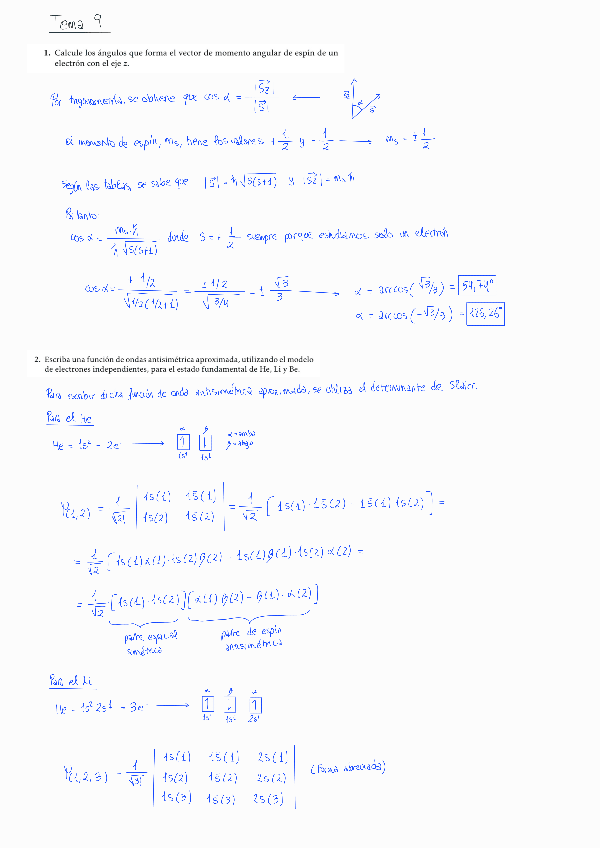 Tema 9
1. Calcule los ángulos que forma el vector de momento angular de espín de un
electrón con el eje z.
Por trigonometría, se obtiene que cos α = |Sz| / |S| ←
El momento de espín, ms, tiene los valores + 1/2 y - 1/2 → ms = ± 1/2
Según las tablas, se sabe que |S| = ħ √S(S+1) y |Sz| = ms ħ
Por tanto
cos α = ms·ħ / ħ √S(S+1) donde S = 1/2 siempre porque estudiamos solo un electrón
cos α = ± 1/2 / √1/2(1/2+1) = ± 1/2 / √3/4 = ± √3/3 → α = arccos(√3/3) = 54,74°
α = arccos(-√3/3) = 125,26°
2. Escriba una función de ondas antisimétrica aproximada, utilizando el modelo
de electrones independientes, para el estado fundamental de He, Li y Be.
Para escribir dicha función de onda antisimétrica aproximada, se utiliza el determinante de Slater.
Para el He
He = 1s² - 2e⁻ → α β α=arriba β=abajo
1s¹ 1s¹
Ψ(1,2) = 1/√2! | 1s(1) 1s̄(1) | = 1/√2 [ 1s(1)·1s̄(2) - 1s̄(1)·1s(2) ] =
| 1s(2) 1s̄(2) |
= 1/√2 [ 1s(1)α(1)·1s(2)β(2) - 1s(1)β(1)·1s(2)α(2) =
= 1/√2 [1s(1)·1s(2)] [α(1)β(2) - β(1)·α(2)]
parte espacial parte de espín
simétrica antisimétrica
Para el Li
He = 1s² 2s¹ - 3e⁻ → α β α
1s¹ 1s¹ 2s¹
Ψ(1,2,3) = 1/√3! | 1s(1) 1s̄(1) 2s(1) |
| 1s(2) 1s̄(2) 2s(2) | (Forma abreviada)
| 1s(3) 1s̄(3) 2s(3) |